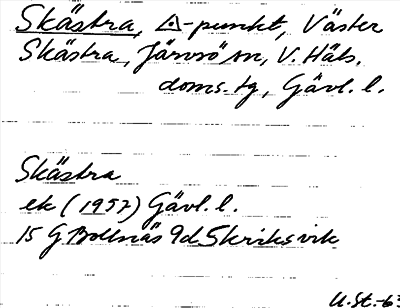 Skästra, △-punkt, Väster
Skästra, Järvsö sn, V. Häls.
doms. tg, Gävl. l.
Skästra
ek (1957) Gävl. l.
15 G Bollnäs 9d Skriksvik
U. St. -63